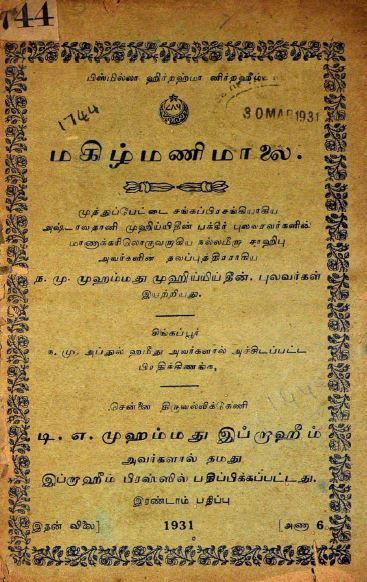 744
பிஸ்மில்லா ஹிர்றஹ்மா னிர்றஹீம்.
1744
30 MAR 1931
மகிழ்மணிமாலை.
முத்துப்பேட்டை சங்கப்பிரசங்கியாகிய
அஷ்டாவதானி முஹிய்யிதீன் பக்கீர் புலவரவர்களின்
மாணாக்கரிலொருவருகிய நல்லமீரு சாஹிபு
அவர்களின் தலப்புத்திரராகிய
ந. மு. முஹம்மது முஹிய்யிய்தீன். புலவர்கள்
இயற்றியது.
சிங்கப்பூர்
ந. மு. அப்துல் ஹமீது அவர்களால் அச்சிடப்பட்ட
பிரதிக்கிணங்க,
சென்னை திருவல்லிக்கேணி
டி. எ. முஹம்மது இப்றாஹீம்
அவர்களால் தமது
இப்றாஹீம் பிரஸ்ஸில் பதிப்பிக்கப்பட்டது.
இரண்டாம் பதிப்பு
இதன் விலை] 1931 [அணா 6